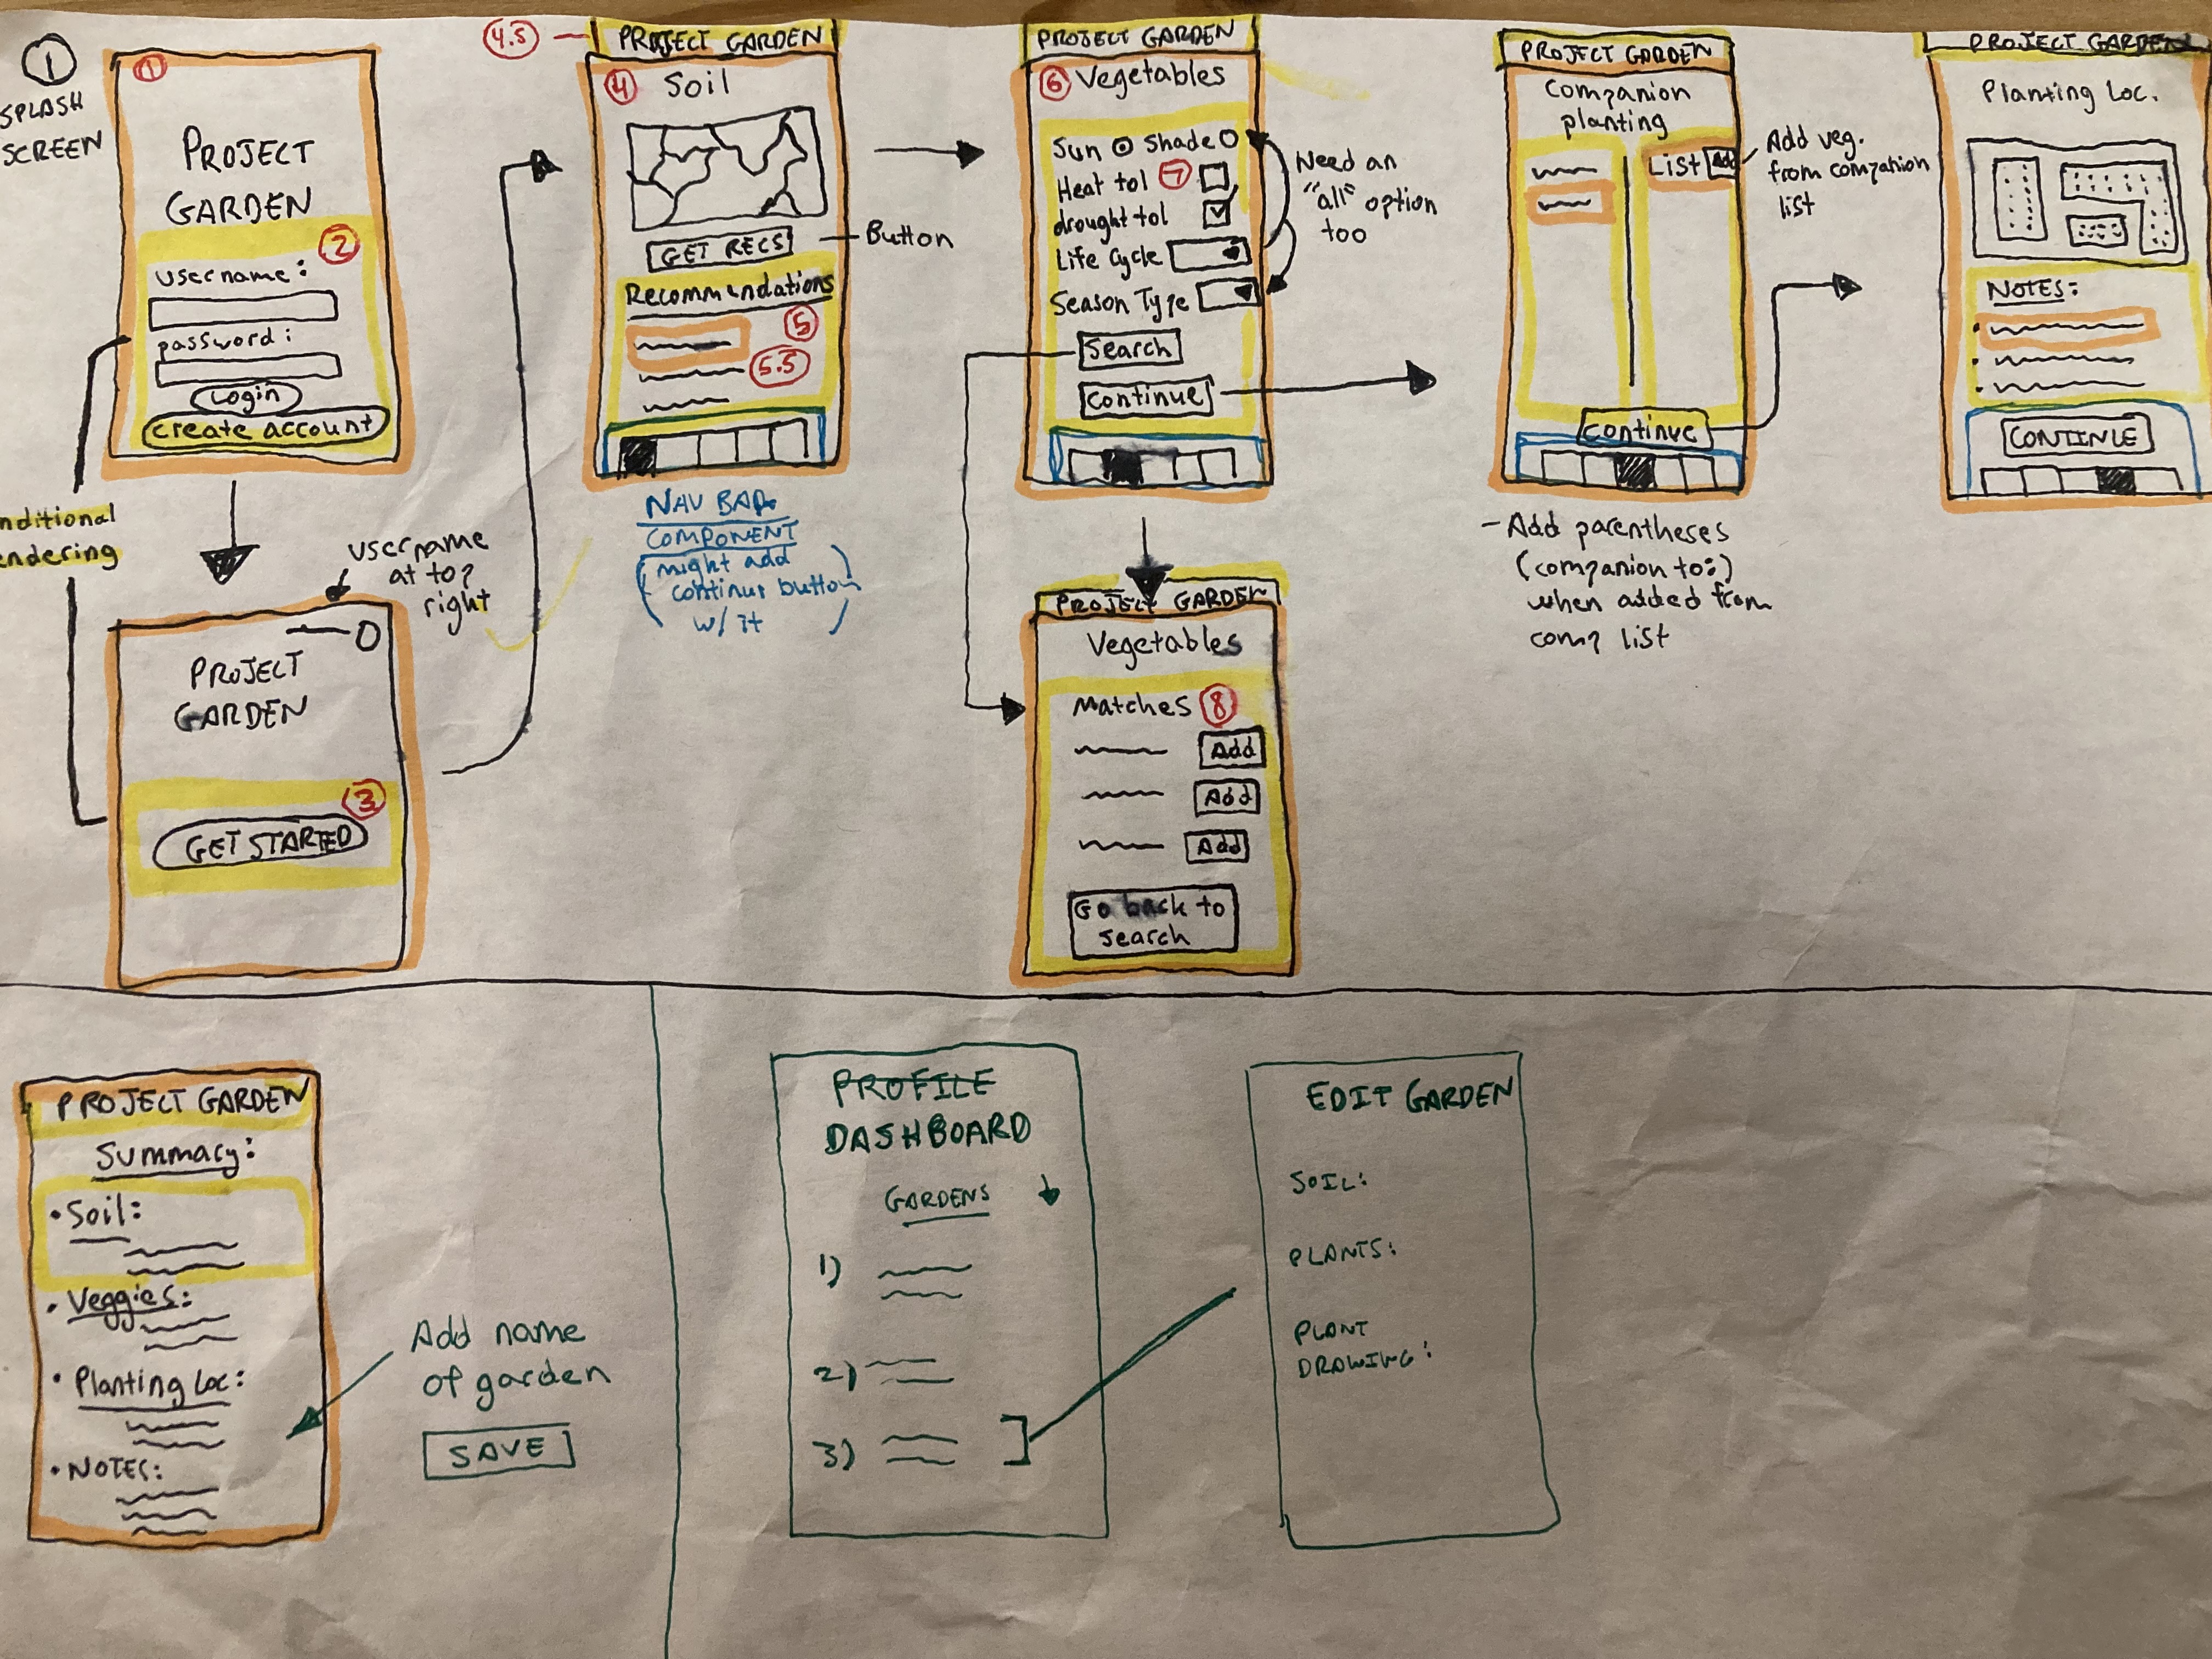 1
SPLASH
SCREEN
1
PROJECT
GARDEN
2
username:
password:
Login
create account
nditional
endering
username
at top
right
PROJECT
GARDEN
3
GET STARTED
4.5
PROJECT GARDEN
4 Soil
GET RECS
Button
Recommendations
5
5.5
NAV BAR
COMPONENT
(might add
continue button
w/ it)
PROJECT GARDEN
6 Vegetables
Sun Shade
Heat tol 7
drought tol
Life Cycle
Season Type
Search
Continue
Need an
"all" option
too
PROJECT GARDEN
Vegetables
Matches 8
Add
Add
Add
Go back to
search
PROJECT GARDEN
Companion
planting
List Add
Add veg.
from companion
list
Continue
- Add parentheses
(companion to:)
when added from
comp list
PROJECT GARDEN
Planting Loc.
NOTES:
CONTINUE
PROJECT GARDEN
Summary:
• Soil:
• Veggies:
• Planting Loc:
• NOTES:
Add name
of garden
SAVE
PROFILE
DASHBOARD
GARDENS
1)
2)
3)
EDIT GARDEN
SOIL:
PLANTS:
PLANT
DRAWING: